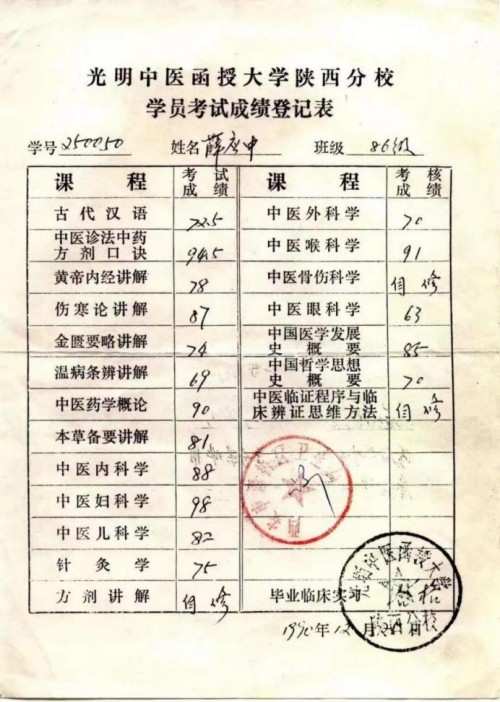 光明中医函授大学陕西分校
学员考试成绩登记表
学号 250050 姓名 薛 中 班级 86级
课程 考试成绩 课程 考核成绩
古代汉语 72.5 中医外科学 70
中医诊法中药方剂口诀 94.5 中医喉科学 91
黄帝内经讲解 78 中医骨伤科学 自修
伤寒论讲解 87 中医眼科学 63
金匮要略讲解 74 中国医学发展史概要 85
温病条辨讲解 69 中国哲学思想史概要 70
中医药学概论 90 中医临证程序与临床辨证思维方法 自修
本草备要讲解 81
中医内科学 88
中医妇科学 98
中医儿科学 82
针灸学 75
方剂讲解 自修 毕业临床实习 合格
1990年12月 日
光明中医函授大学
陕西分校